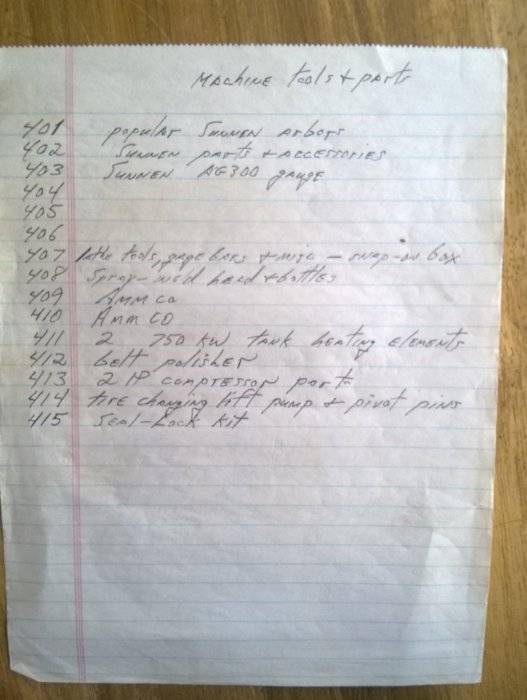 MACHINE tools + parts
401 popular SUNNEN arbors
402 SUNNEN parts + ACCESSORIES
403 SUNNEN AG300 gauge
404
405
406
407 lathe tools, gage bars + misc - snap-on box
408 Spray-weld head + bottles
409 AMMCO
410 AMMCO
411 2 750 KW tank heating elements
412 belt polisher
413 2 HP compressor parts
414 tire changing lift pump + pivot pins
415 Seal-Lock Kit